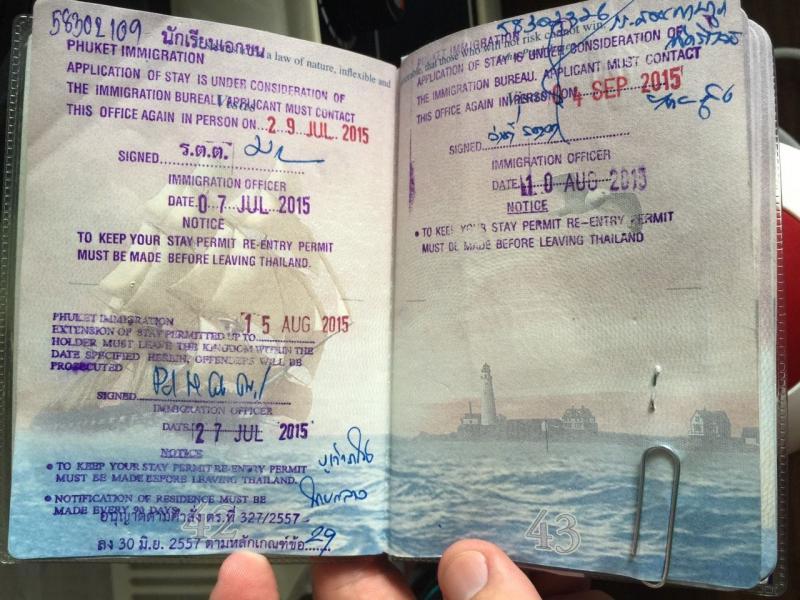 58302109 นักเรียนเอกชน
a law of nature, inflexible and
PHUKET IMMIGRATION
APPLICATION OF STAY IS UNDER CONSIDERATION OF
THE IMMIGRATION BUREAU. APPLICANT MUST CONTACT
THIS OFFICE AGAIN IN PERSON ON 29 JUL 2015
SIGNED ร.ต.ต.
IMMIGRATION OFFICER
DATE 07 JUL 2015
NOTICE
TO KEEP YOUR STAY PERMIT RE-ENTRY PERMIT
MUST BE MADE BEFORE LEAVING THAILAND.
PHUKET IMMIGRATION
EXTENSION OF STAY PERMITTED UP TO 15 AUG 2015
HOLDER MUST LEAVE THE KINGDOM WITHIN THE
DATE SPECIFIED HEREIN, OFFENDERS WILL BE
PROSECUTED
SIGNED
IMMIGRATION OFFICER
DATE 27 JUL 2015
NOTICE
• TO KEEP YOUR STAY PERMIT RE-ENTRY PERMIT
MUST BE MADE BEFORE LEAVING THAILAND.
• NOTIFICATION OF RESIDENCE MUST BE
MADE EVERY 90 DAYS.
อนุญาตตามคำสั่ง ตร.ที่ 327/2557
ลง 30 มิ.ย. 2557 ตามหลักเกณฑ์ข้อ 29
42
58302326
that those who will not risk cannot win.
PHUKET IMMIGRATION
APPLICATION OF STAY IS UNDER CONSIDERATION OF
THE IMMIGRATION BUREAU. APPLICANT MUST CONTACT
THIS OFFICE AGAIN IN PERSON ON 4 SEP 2015
SIGNED
IMMIGRATION OFFICER
DATE 10 AUG 2015
NOTICE
• TO KEEP YOUR STAY PERMIT RE-ENTRY PERMIT
MUST BE MADE BEFORE LEAVING THAILAND
43